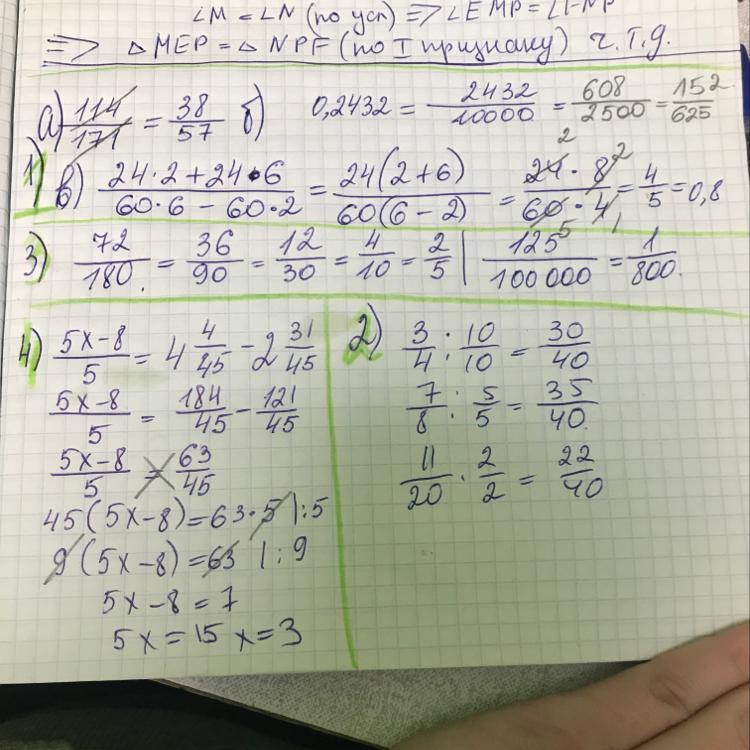 ∠M = ∠N (по усл) => ∠EMP = ∠FNP
=> △MEP = △NPF (по I признаку) ч.т.д.
1) а) 114/171 = 38/57 б) 0,2432 = 2432/10000 = 608/2500 = 152/625
в) 24·2+24·6/60·6−60·2 = 24(2+6)/60(6−2) = 24·8/60·4 = 4/5 = 0,8
3) 72/180 = 36/90 = 12/30 = 4/10 = 2/5 | 125/100000 = 1/800
4) 5x−8/5 = 4 4/45 − 2 31/45
5x−8/5 = 184/45 − 121/45
5x−8/5 = 63/45
45(5x−8)=63·5 |:5
9(5x−8)=63 |:9
5x−8=7
5x=15 x=3
2) 3/4 · 10/10 = 30/40
7/8 · 5/5 = 35/40
11/20 · 2/2 = 22/40